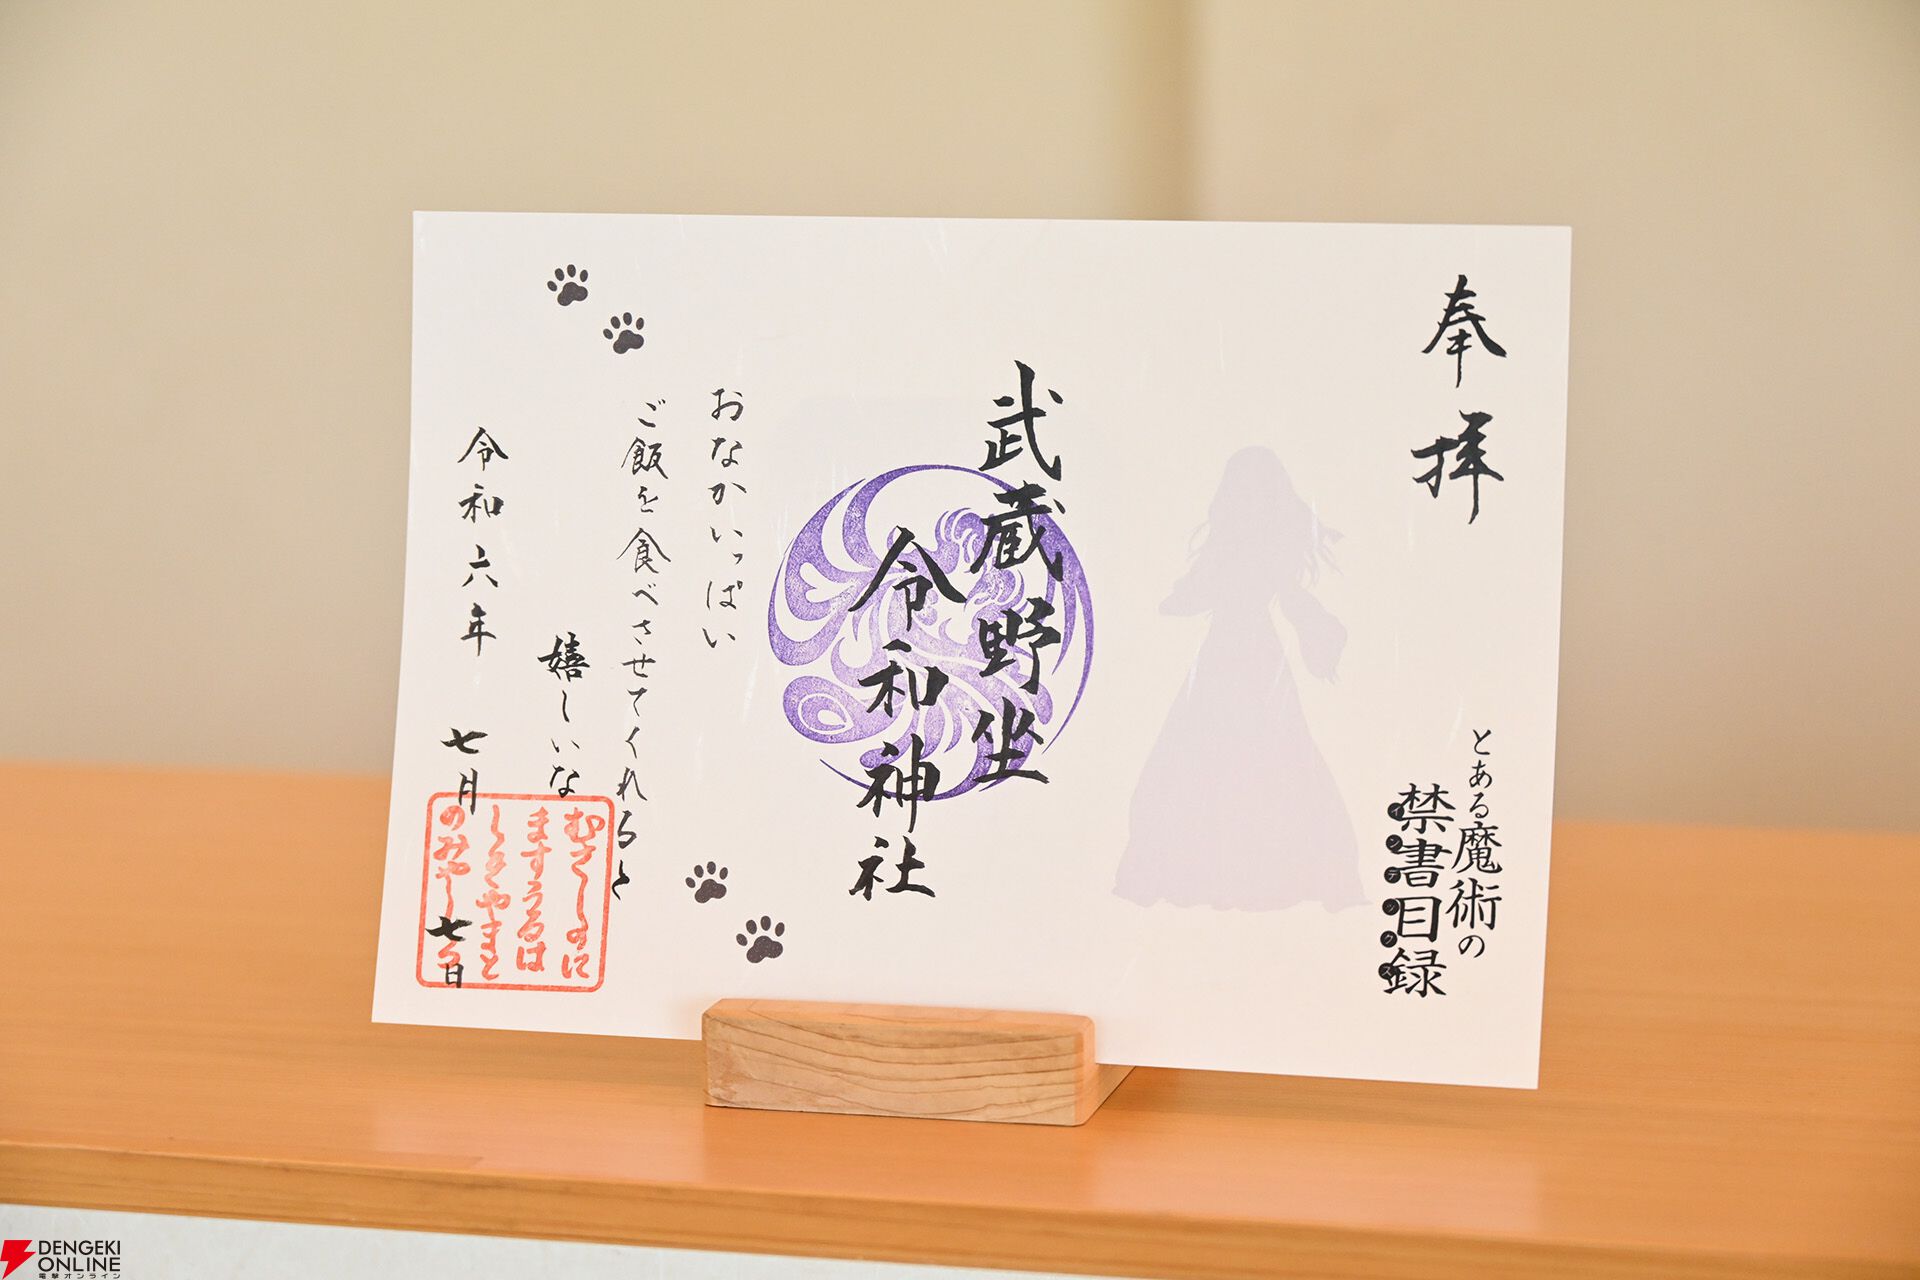 奉拝
とある魔術の
禁書目録
インデックス
武蔵野坐
令和神社
おなかいっぱい
ご飯を食べさせてくれると
嬉しいな
令和六年
七月
七日
むさしのに
ますうるは
しきやまと
のみやしろ
DENGEKI
ONLINE
電撃オンライン